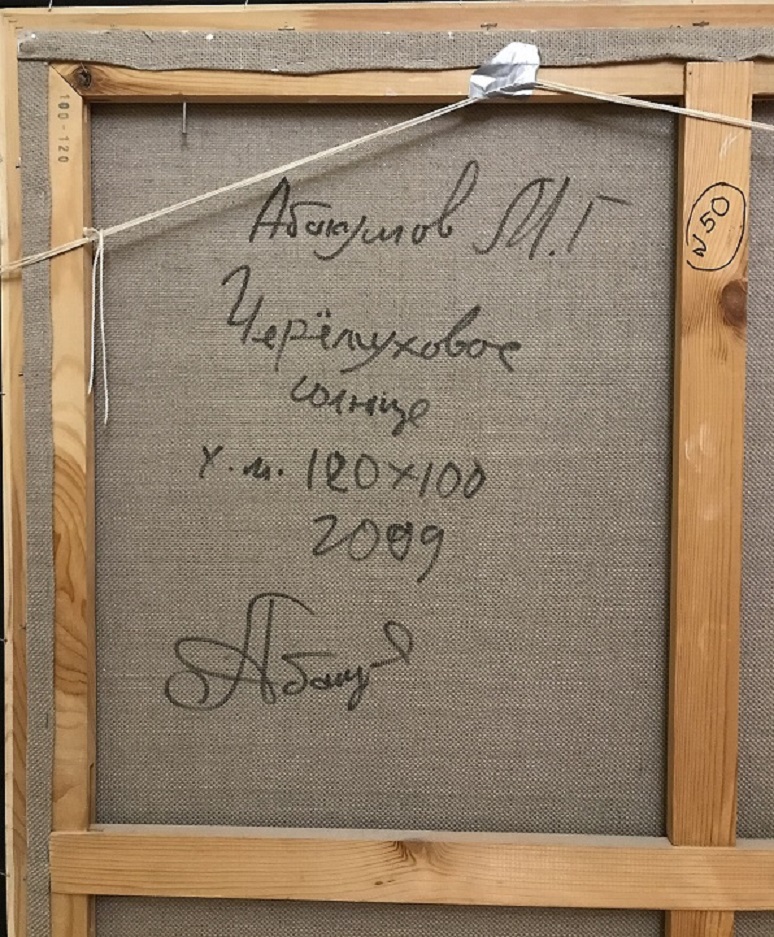 100-120
Абакумов М.Г
N50
Черёмуховое
солнце
х.м. 120×100
2009
Абакум